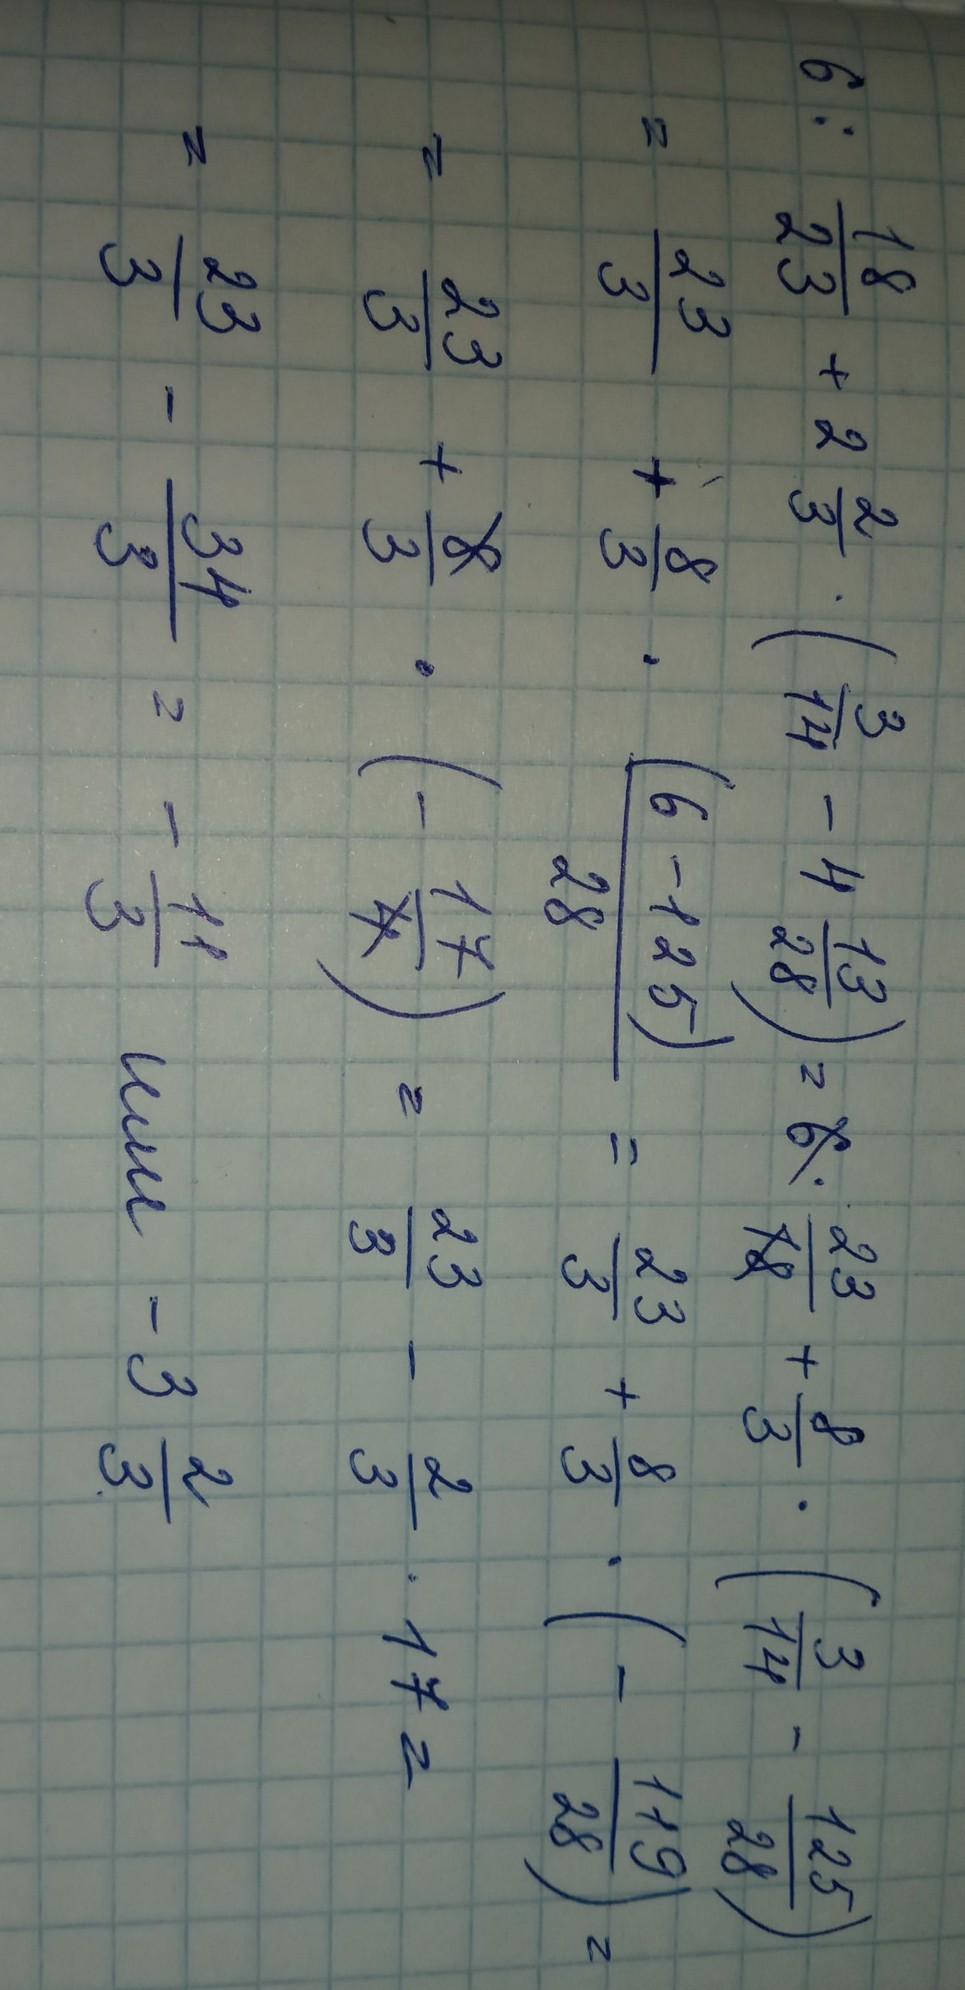 6 : 18/23 + 2 2/3 · (3/14 - 4 13/28) = 6 · 23/18 + 8/3 · (3/14 - 125/28)
= 23/3 + 8/3 · (6 - 125)/28 = 23/3 + 8/3 · (- 119/28) =
= 23/3 + 8/3 · (- 17/4) = 23/3 - 2/3 · 17 =
= 23/3 - 34/3 = - 11/3 или - 3 2/3